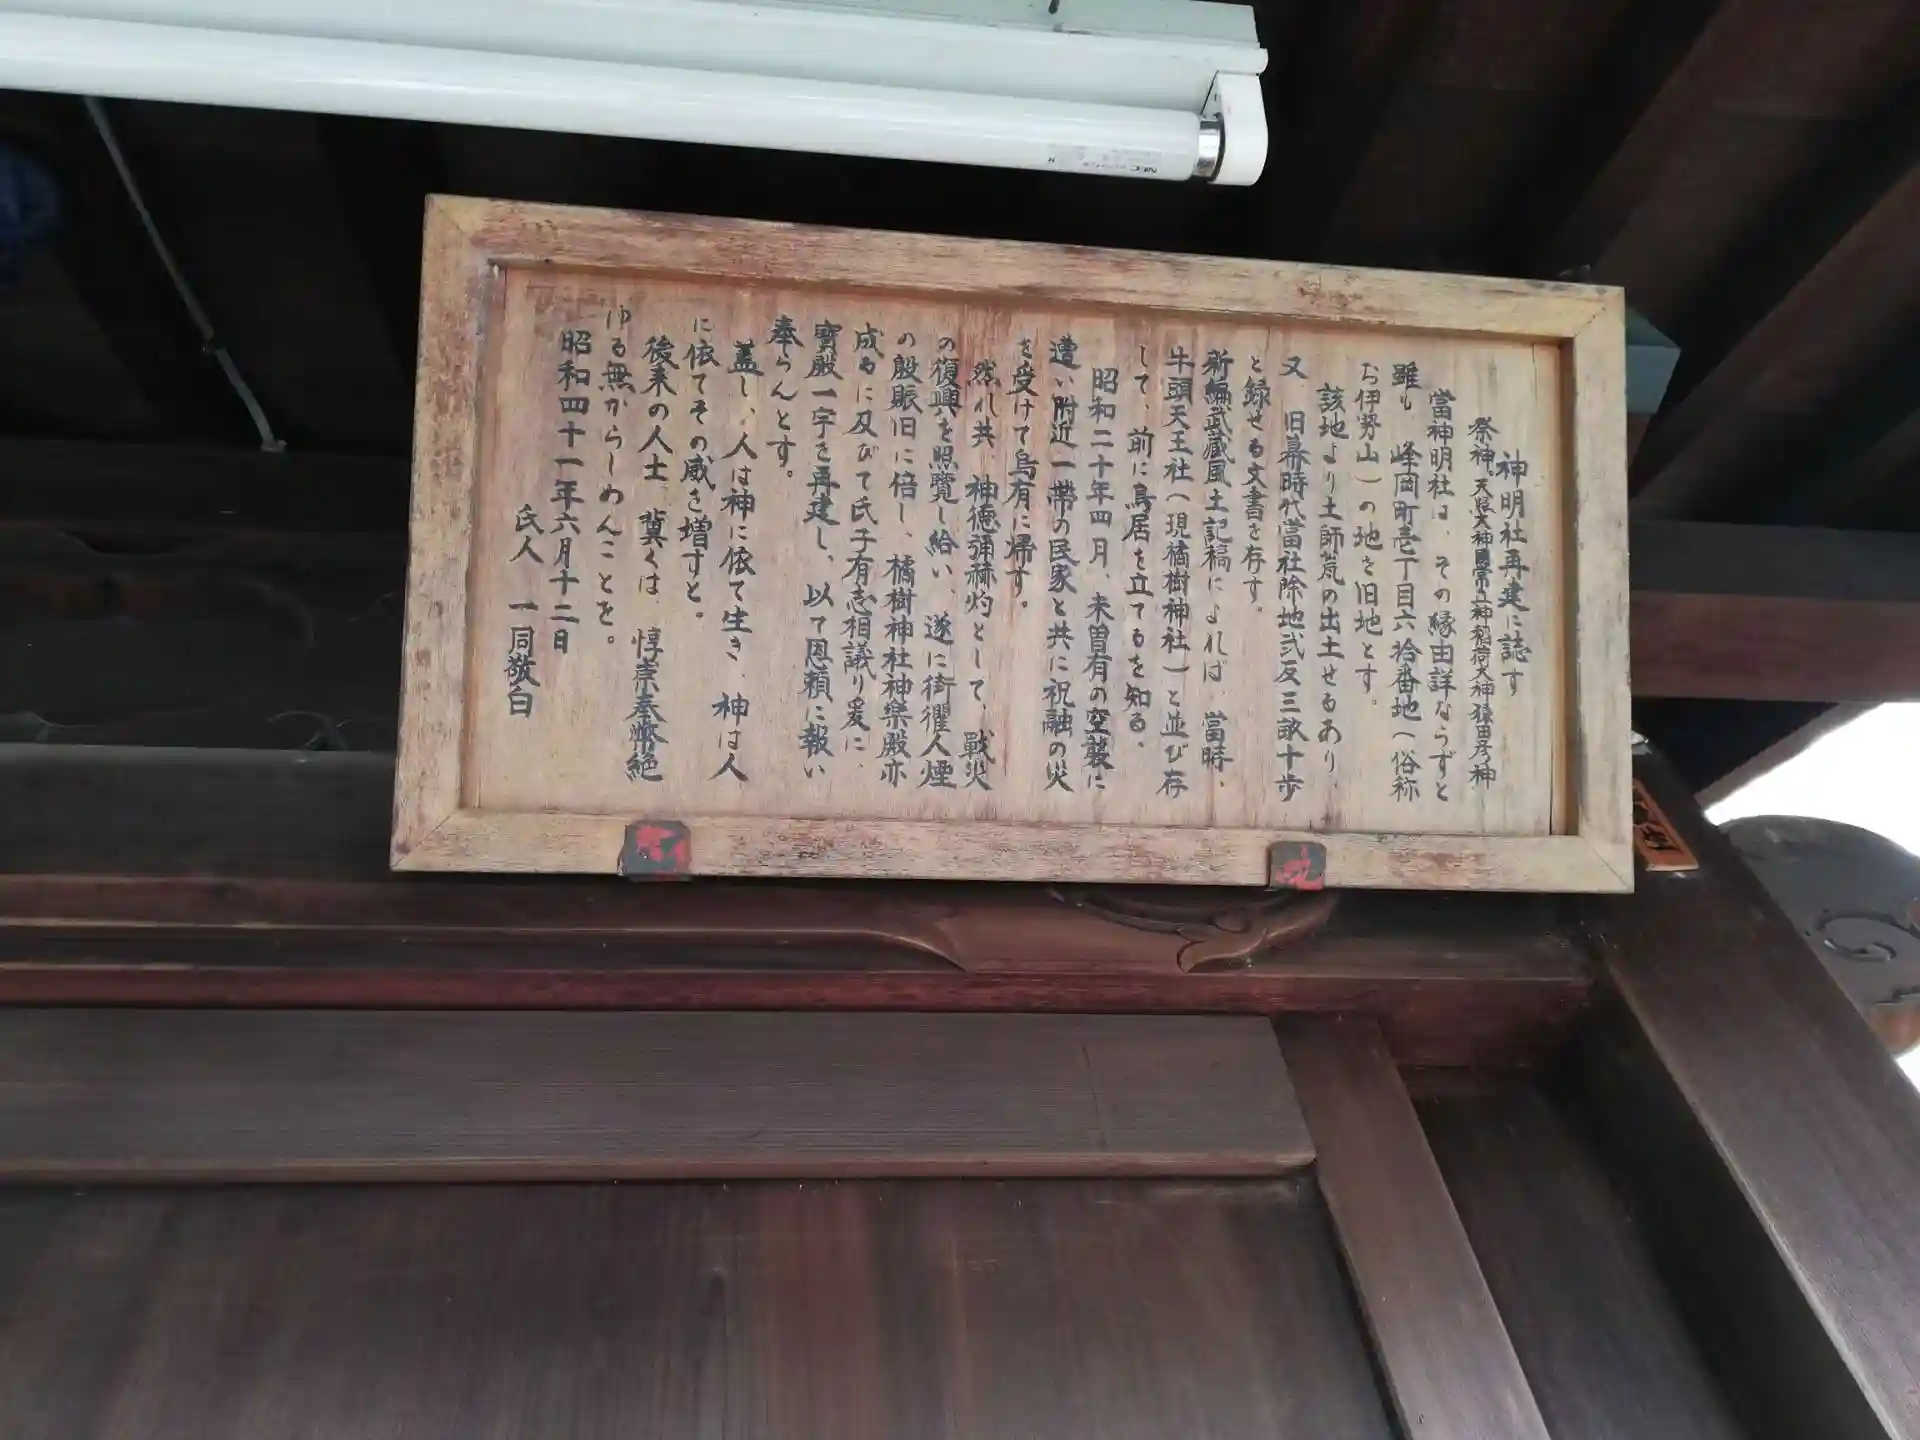 神明社再建に誌す
祭神、天照大神國常立神稲荷大神猿田彦神
當神明社は、その縁由詳ならずと
雖も 峰岡町壱丁目六拾番地(俗称
お伊勢山)の地を旧地とす。
該地より土師器の出土せるあり、
又 旧幕時代當社除地弐反三畝十歩
と録せる文書を存す。
新編武蔵風土記稿によれば、當時、
牛頭天王社(現橘樹神社)と並び存
して、前に鳥居を立てるを知る、
昭和二十年四月、未曽有の空襲に
遭い附近一帯の民家と共に祝融の災
を受けて烏有に帰す。
然れ共 神徳彌赫灼として、戦災
の復興を照覽し給い、遂に街衢人煙
の殷賑旧に倍し、橘樹神社神樂殿亦
成るに及びて氏子有志相議り爰に、
寶殿一宇を再建し、以て恩頼に報い
奉らんとす。
蓋し、人は神に依て生き、神は人
に依てその威を増すと。
後来の人士、冀くは、惇崇奉幣絶
ゆる無からしめんことを。
昭和四十一年六月十二日
氏人 一同敬白
NEC